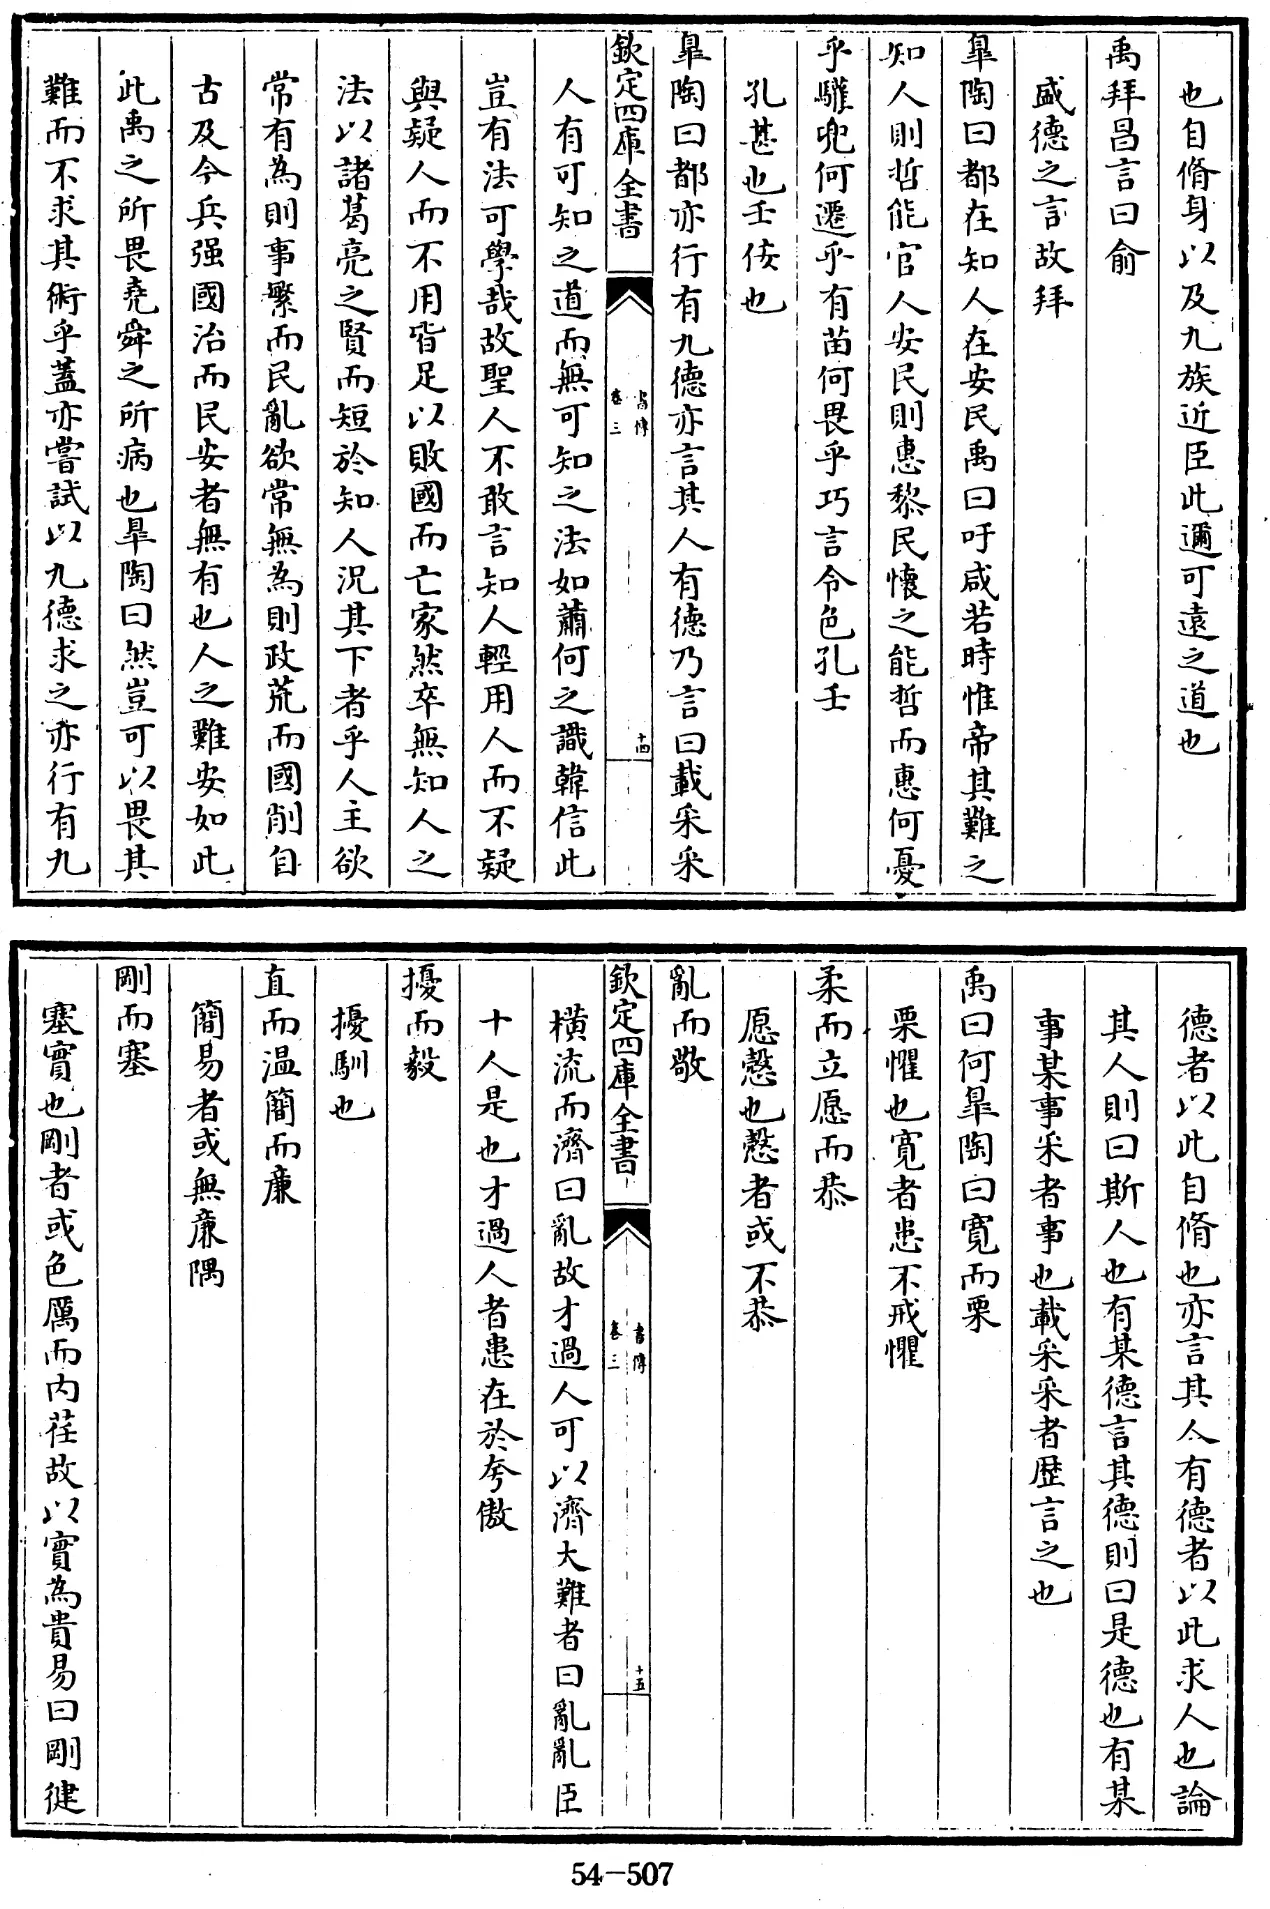 也自脩身以及九族近臣此邇可遠之道也
禹拜昌言曰俞
盛德之言故拜
臯陶曰都在知人在安民禹曰吁咸若時惟帝其難之
知人則哲能官人安民則惠黎民懷之能哲而惠何憂
乎驩兜何遷乎有苗何畏乎巧言令色孔壬
孔甚也壬佞也
臯陶曰都亦行有九德亦言其人有德乃言曰載采采
欽定四庫全書
書傳
卷三
十四
人有可知之道而無可知之法如蕭何之識韓信此
豈有法可學哉故聖人不敢言知人輕用人而不疑
與疑人而不用皆足以敗國而亡家然卒無知人之
法以諸葛亮之賢而短於知人况其下者乎人主欲
常有為則事繁而民亂欲常無為則政荒而國削自
古及今兵强國治而民安者無有也人之難安如此
此禹之所畏堯舜之所病也臯陶曰然豈可以畏其
難而不求其術乎蓋亦嘗試以九德求之亦行有九
德者以此自脩也亦言其人有德者以此求人也論
其人則曰斯人也有某德言其德則曰是德也有某
事某事采者事也載采采者歴言之也
禹曰何臯陶曰寛而栗
栗懼也寛者患不戒懼
柔而立愿而恭
愿慤也慤者或不恭
亂而敬
欽定四庫全書
書傳
卷三
十五
橫流而濟曰亂故才過人可以濟大難者曰亂亂臣
十人是也才過人者患在於夸傲
擾而毅
擾馴也
直而温簡而廉
簡易者或無廉隅
剛而塞
塞實也剛者或色厲而内荏故以實為貴易曰剛健
54-507